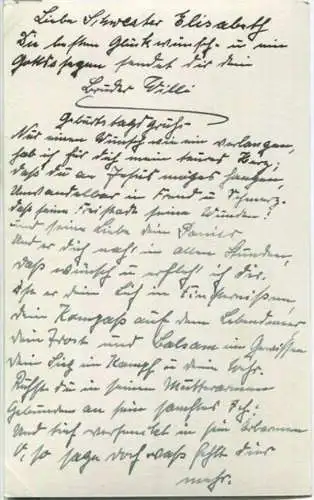 Liebe Schwester Elisabeth
Die besten Glückwünsche u ein
Gottessegen sendet dir dein
Bruder Willi
Geburtstagsgruß.
Nur einen Wunsch wie ein verlangen,
hab ich für dich mein teures Herz;
daß du an Jesus mögest hangen
Unwandelbar in Freud u Schmerz.
daß seine Freistadt seine Wunden!
und seine Liebe dein Panier
Und er dich nah in allen Stunden,
daß wünsch u erfleh ich dir.
Sei er dein Licht in Finsternissen,
dein Kompaß auf dem Lebensmeer
dein Trost und Balsam im Gewissen
dein Sieg im Kampf u deine Wehr.
Ruhst du in seinen Mutterarmen
Gebunden an sein sanftes Joch.
Und tief versenkt in sein Erbarmen
O, so sage doch was fehlt dir
mehr.